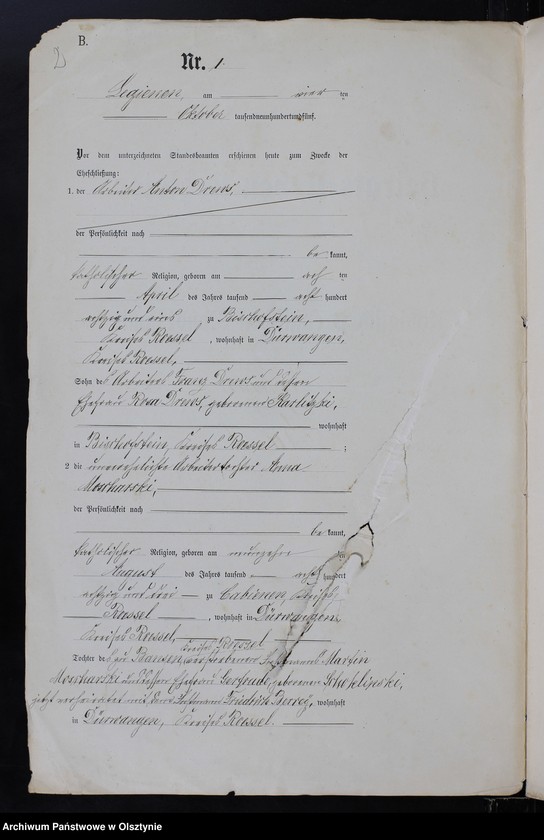 B.
2
Nr. 1
Legienen, am vier ten
Oktober tausendneunhundertundfünf.
Vor dem unterzeichneten Standesbeamten erschienen heute zum Zwecke der
Eheschließung:
1. der Arbeiter Anton Drews,
der Persönlichkeit nach
be kannt,
katholischer Religion, geboren am ten
April des Jahres tausend acht hundert
achtzig und eins zu Bischofstein,
Kreises Roessel, wohnhaft in Dürwangen,
Kreises Roessel,
Sohn des Arbeiters Franz Drews und dessen
Ehefrau Rosa Drews, geborenen
wohnhaft
in Bischofstein, Kreises Roessel ;
2 die unverehelichte Arbeitertochter Anna
Moscharski,
der Persönlichkeit nach
be kannt,
katholischer Religion, geboren am ten
August des Jahres tausend acht hundert
achtzig und drei zu Cabienen, Kreises
Roessel, wohnhaft in Dürwangen,
Kreises Roessel,
Kreises Roessel
Tochter des zu Bansen, verstorbenen Martin
Moscharski und dessen Ehefrau Gertrude, geborenen
jetzt verheiratet mit dem Friedrich wohnhaft
in Dürwangen, Kreises Roessel.
Archiwum Państwowe w Olsztynie